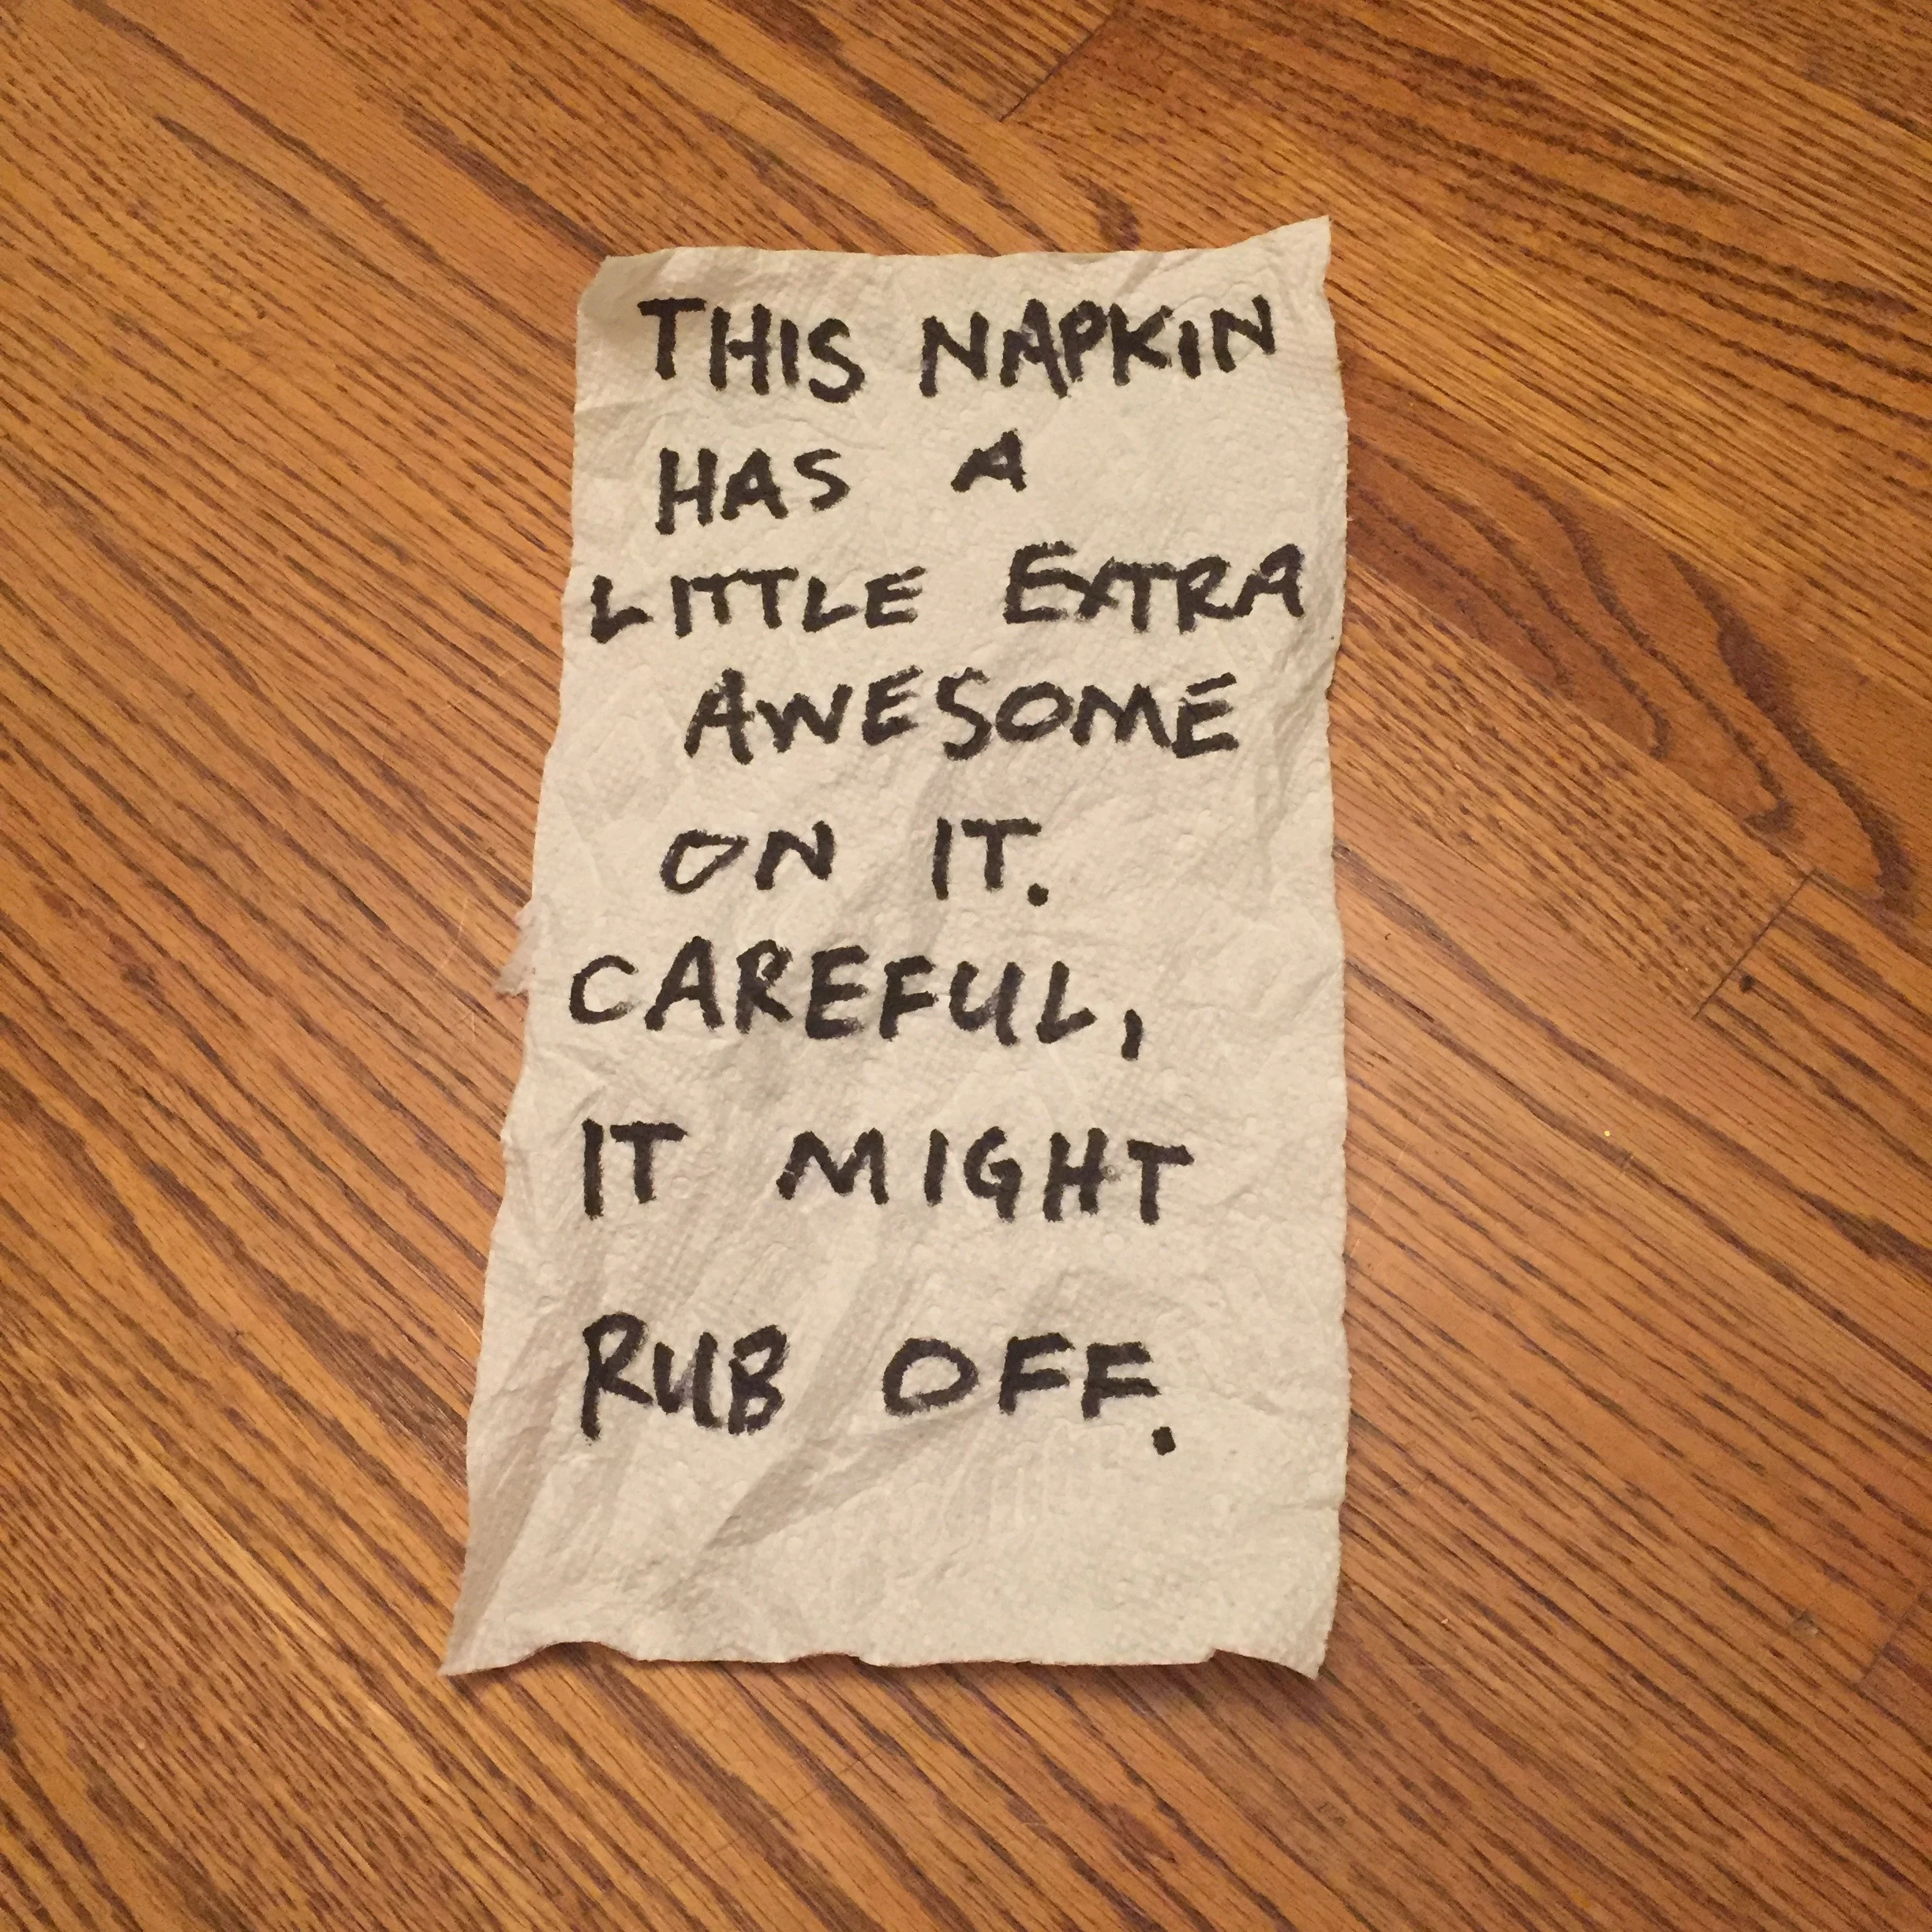 THIS NAPKIN
HAS A
LITTLE EXTRA
AWESOME
ON IT.
CAREFUL,
IT MIGHT
RUB OFF.